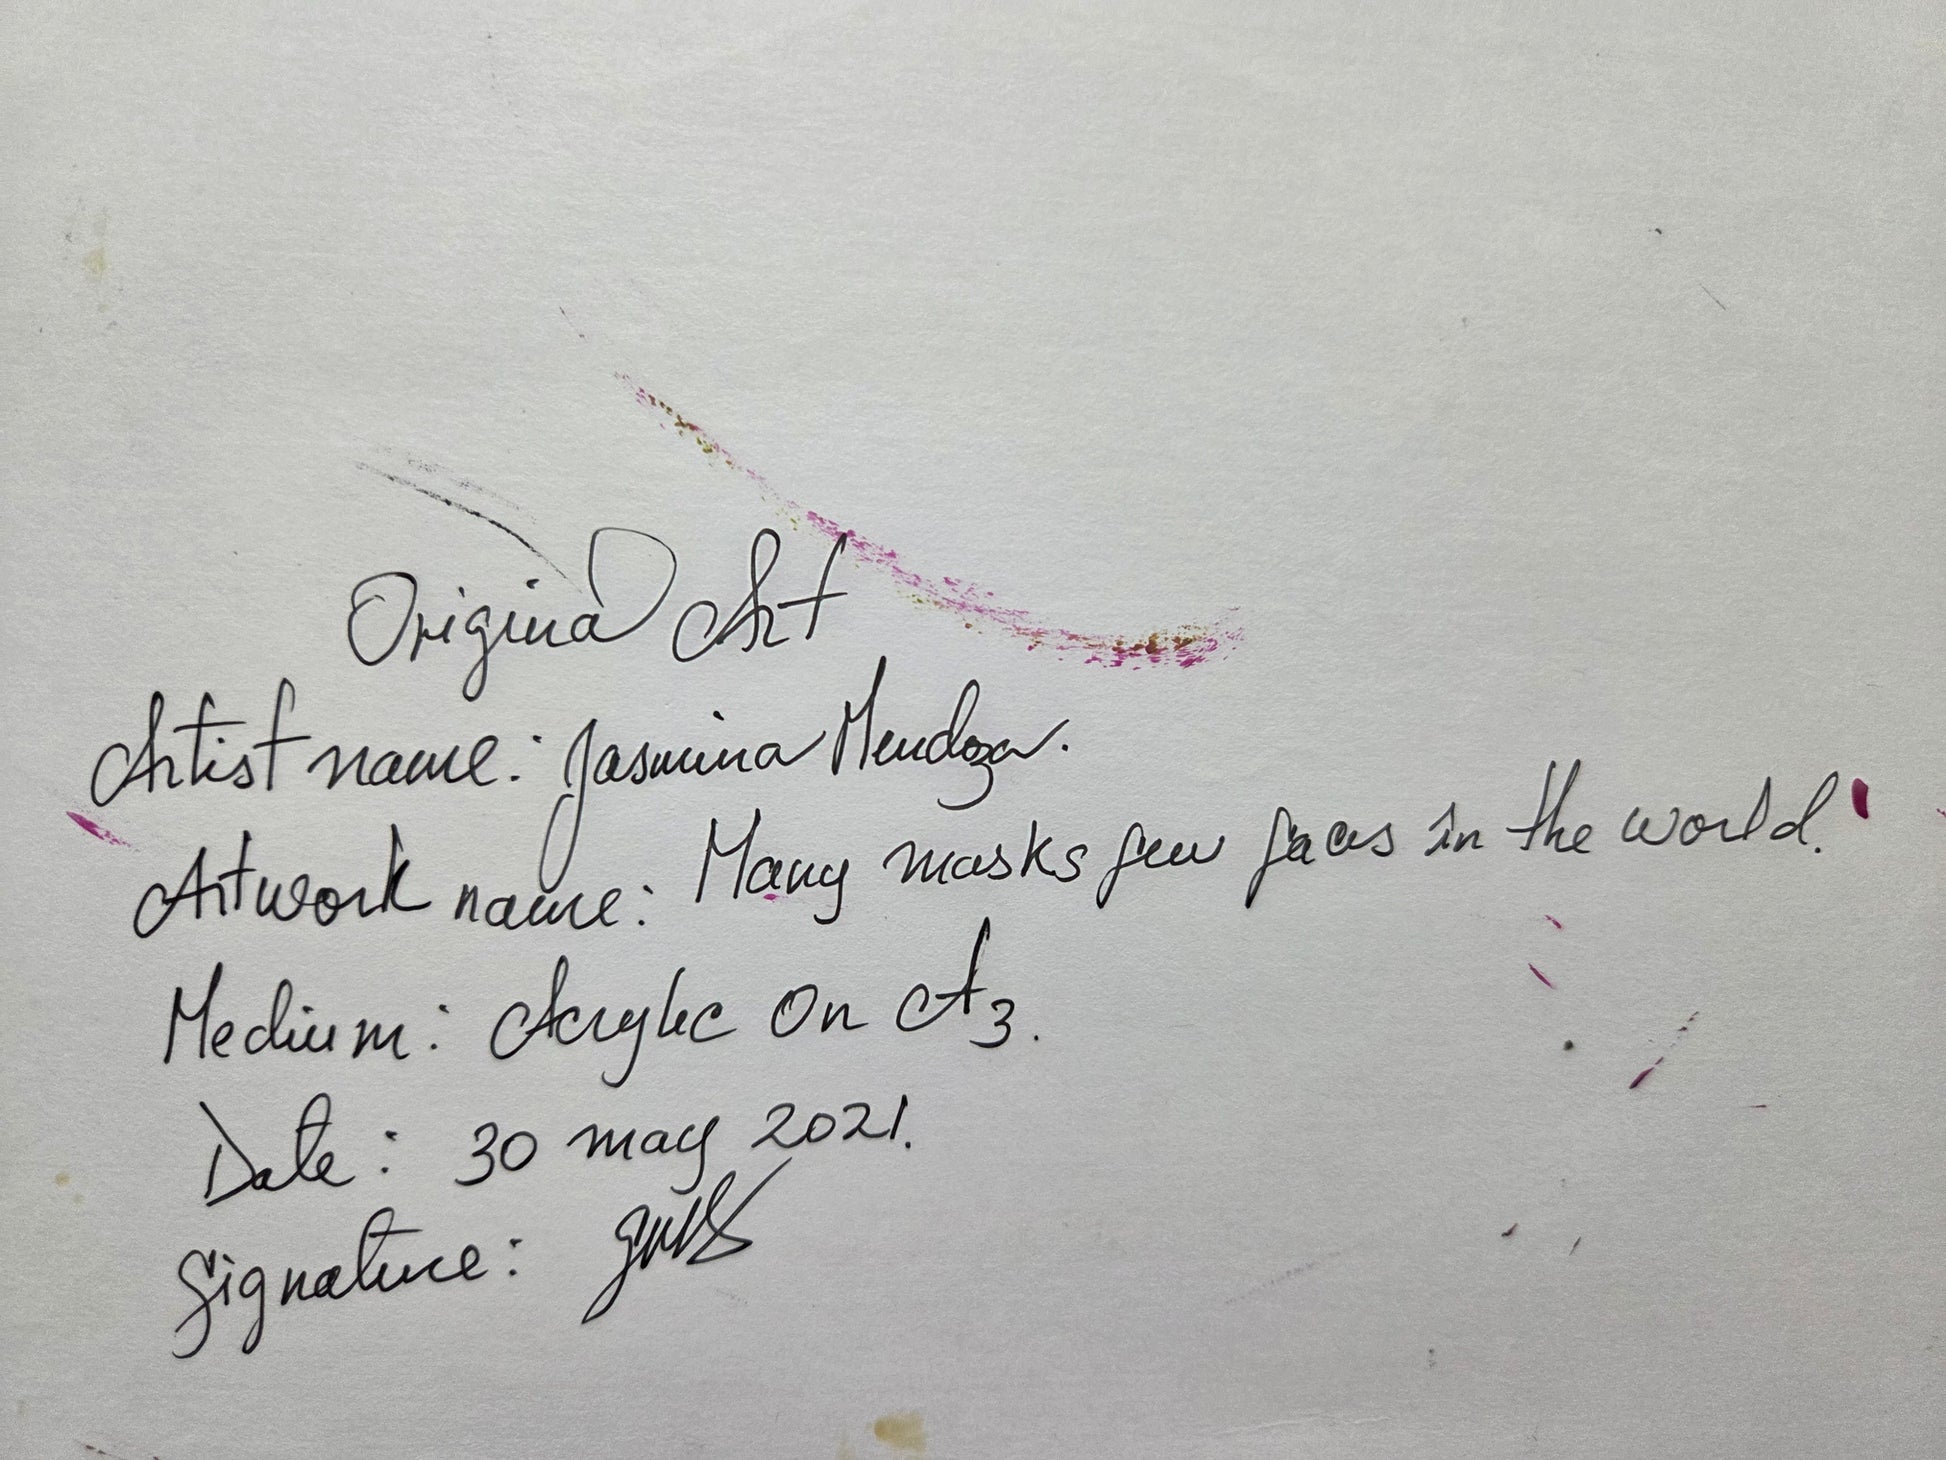 Original Art
Artist name: Jasmina Mendoza.
Artwork name: Many masks few faces in the world.
Medium: Acrylic On A3.
Date: 30 may 2021.
Signature: